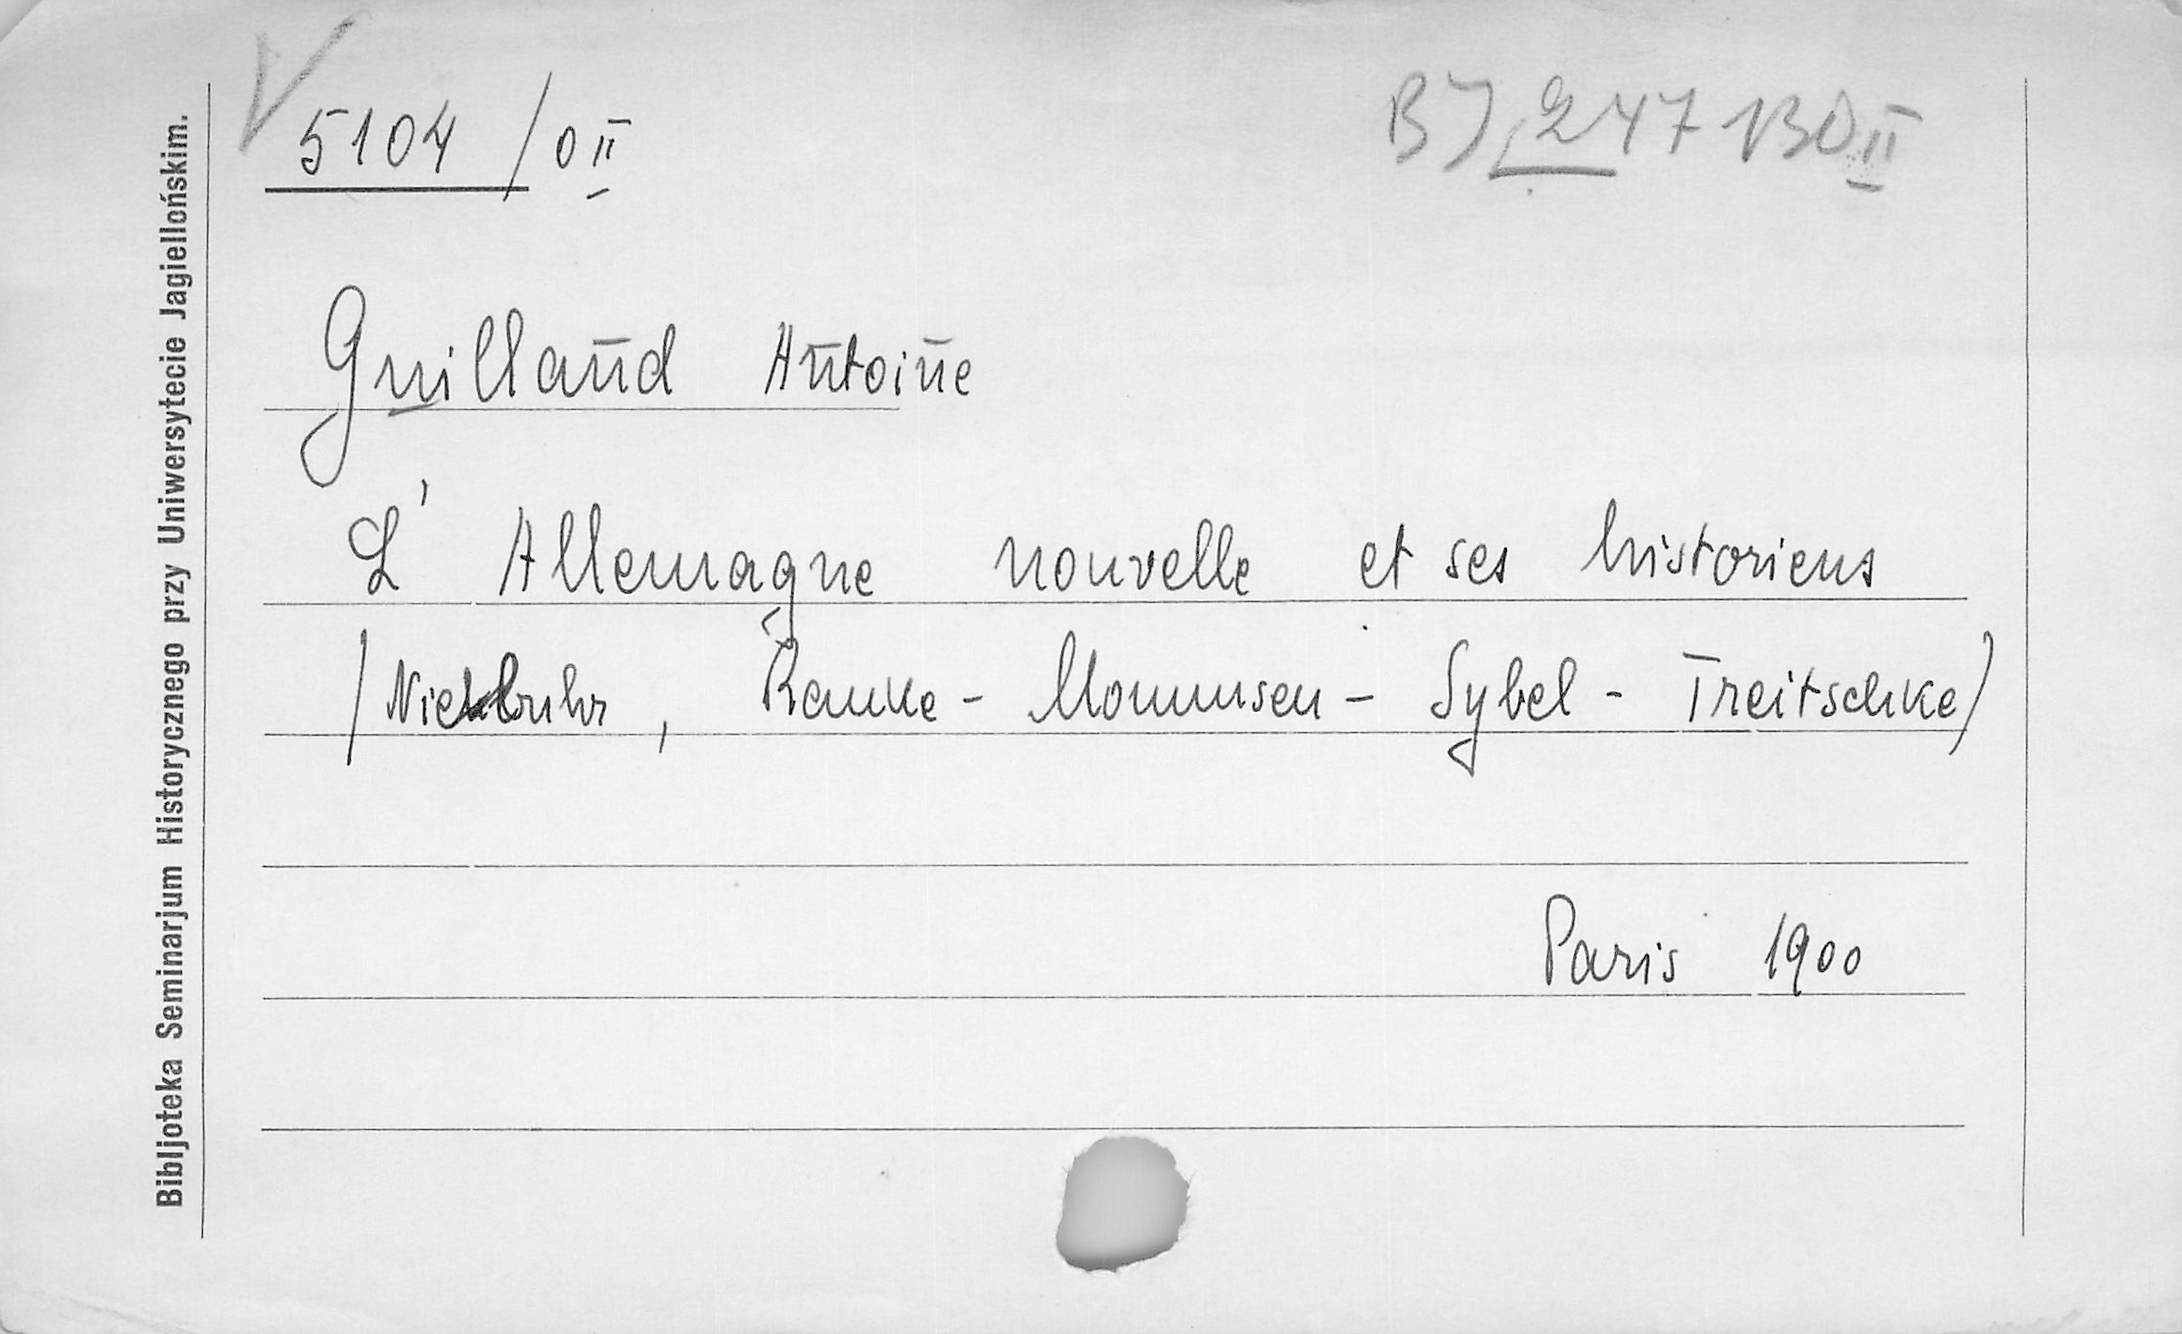 V 5104 / 0 II
BJ 247130 II
Guilland Antoine
L'Allemagne nouvelle et ses historiens
/Niebuhr, Ranke - Mommsen - Sybel - Treitschke/
Paris 1900
Bibljoteka Seminarjum Historycznego przy Uniwersytecie Jagiellońskim.